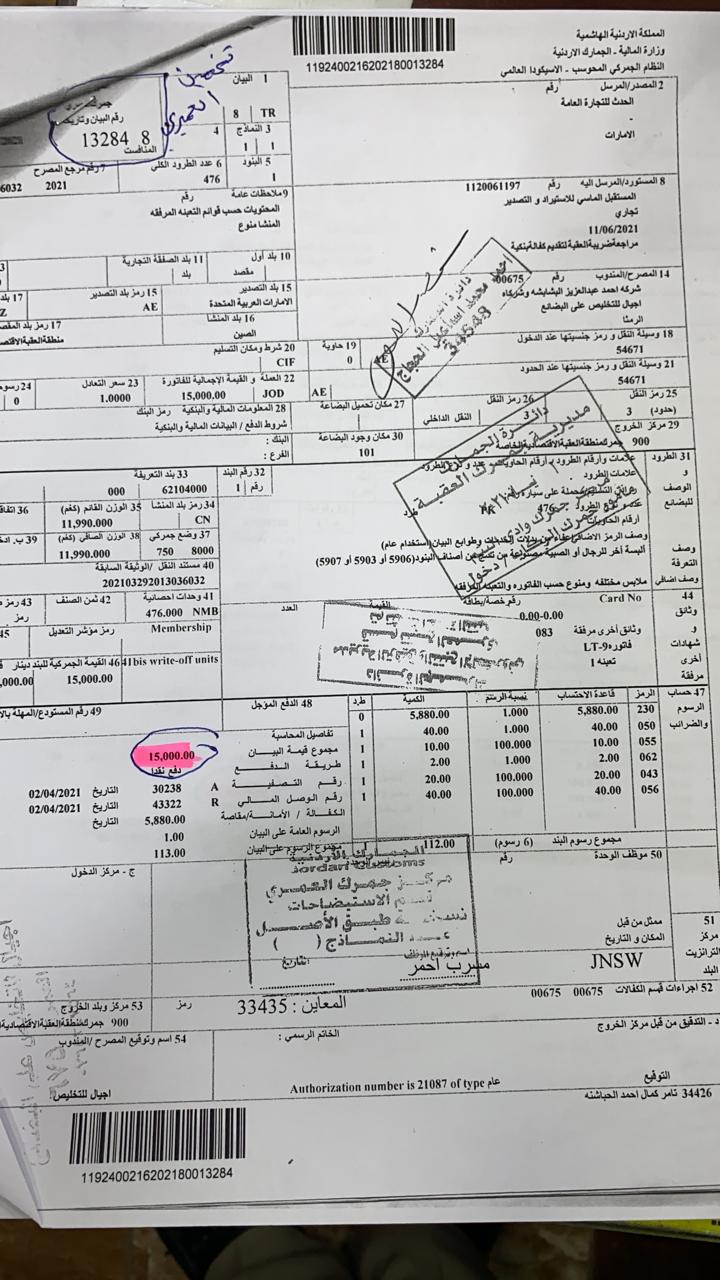 المملكة الاردنية الهاشمية
وزارة المالية - الجمارك الاردنية
النظام الجمركي المحوسب - الاسيكودا العالمي
1192400216202180013284
2 المصدر/المرسل رقم
الحدث للتجارة العامة
-
الامارات
1 البيان
8 TR
تخمين
العميري
رقم البيان وتاريخه
13284 8
المنافست
3 النماذج 4
1 1
5 البنود 6 عدد الطرود الكلي 7 رقم مرجع المصرح
1 476 2021 6032
8 المستورد/المرسل اليه رقم 1120061197
المستقبل الماسي للاستيراد و التصدير
تجاري
11/06/2021
مراجعةضريبةالعقبةلتقديم كفالةبنكية
9 ملاحظات عامة رقم
المحتويات حسب قوائم التعبنه المرفقه
المنشا منوع
10 بلد أول 11 بلد الصفقة التجارية
مقصد بلد
14 المصرح/المندوب رقم 00675
شركه احمد عبدالعزيز البشابشه وشركاه
اجيال للتخليص على البضائع
الرمثا
15 بلد التصدير 15 رمز بلد التصدير 17 بلد
الامارات العربية المتحدة AE Z
16 بلد المنشا 17 رمز بلد المقصد
الصين منطقة العقبة الاقتصا
18 وسيلة النقل و رمز جنسيتها عند الدخول 19 حاوية 20 شرط ومكان التسليم
54671 0 CIF
21 وسيلة النقل و رمز جنسيتها عند الحدود 22 العملة و القيمة الإجمالية للفاتورة 23 سعر التعادل 24 رسوم
54671 AE JOD 15,000.00 1.0000 0
25 رمز النقل 26 رمز النقل 27 مكان تحميل البضاعة 28 المعلومات المالية والبنكية رمز البنك
(حدود) 3 3 النقل الداخلي شروط الدفع / البيانات المالية والبنكية
29 مركز الخروج 30 مكان وجود البضاعة البنك :
900 جمركمنطقةالعقبةالاقتصاديةالخاصة 101 الفرع :
دائرة الجمارك
مديرية جمرك العقبة
31 الطرود علامات وأرقام الطرود - أرقام الحاويات - عدد ونوع الطرود 32 رقم البند 33 بند التعريفة
و علامات الطرود رقم 1 62104000 000
الوصف
للبضائع 476
أرقام الحاويات
34 رمز بلد المنشا 35 الوزن القائم (كغم) 36 اتفاق
CN 11,990.000
37 وضع جمركي 38 الوزن الصافي (كغم)
8000 750 11,990.000
وصف الرمز الاضافي
وصف التعرفة ألبسة آخر للرجال أو الصبية مصنوعة من نسج من أصناف البنود(5906 أو 5903 أو 5907)
وصف اضافي ملابس مختلفه ومنوع حسب الفاتوره والتعبنه المرفقه
40 مستند النقل /الوثيقة السابقة
202103292013036032
41 وحدات احصائية 42 ثمن الصنف 43 رمز
476.000 NMB رمز
44 Card No رقم خصة/بطاقة القيمة العدد
وثائق 0.00-0.00
و وثائق أخرى مرفقة 083
شهادات فاتوره LT-9
أخرى تعبنه 1
مرفقة
Membership رمز مؤشر التعديل 45
41bis write-off units 46 القيمة الجمركية للبند دينار
15,000.00
47 حساب الرسوم والضرائب
الرمز قاعدة الاحتساب نسبة الرسم الكمية ط.د
230 5,880.00 1.000 5,880.00 0
050 40.00 1.000 40.00 1
055 10.00 100.000 10.00 1
062 2.00 1.000 2.00 1
043 20.00 100.000 20.00 1
056 40.00 100.000 40.00 1
مجموع رسوم البند (6 رسوم) 112.00
48 الدفع المؤجل 49 رقم المستودع/المهلة بالا
تفاصيل المحاسبة
مجموع قيمة البيان 15,000.00
طريقة الدفع دفع نقدا
رقم التصفية A 30238 التاريخ 02/04/2021
رقم الوصل المالي R 43322 التاريخ 02/04/2021
الكفالة / الأمانة/مقاصة 5,880.00 التاريخ
الرسوم العامة على البيان 1.00
مجموع الرسوم على البيان 113.00
50 موظف الوحدة رقم
ج - مركز الدخول
الجمارك الاردنية
Jordan Customs
مركز جمرك العمري
قسم الاستيضاحات
نسخة طبق الأصل
عدد النماذج ( )
اسم وتوقيع الموظف
التاريخ:
مسرب احمر
51 ممثل من قبل
مركز المكان و التاريخ
الترانزيت JNSW
البلد
52 اجراءات قسم الكفالات 00675 00675
المعاين : 33435
رمز 53 مركز وبلد الخروج
900 جمركمنطقةالعقبةالاقتصادية
د - التدقيق من قبل مركز الخروج
الخاتم الرسمي :
54 اسم وتوقيع المصرح /المندوب
التوقيع
34426 ثامر كمال احمد الحباشنه
Authorization number is 21087 of type عام
اجيال للتخليص
1192400216202180013284